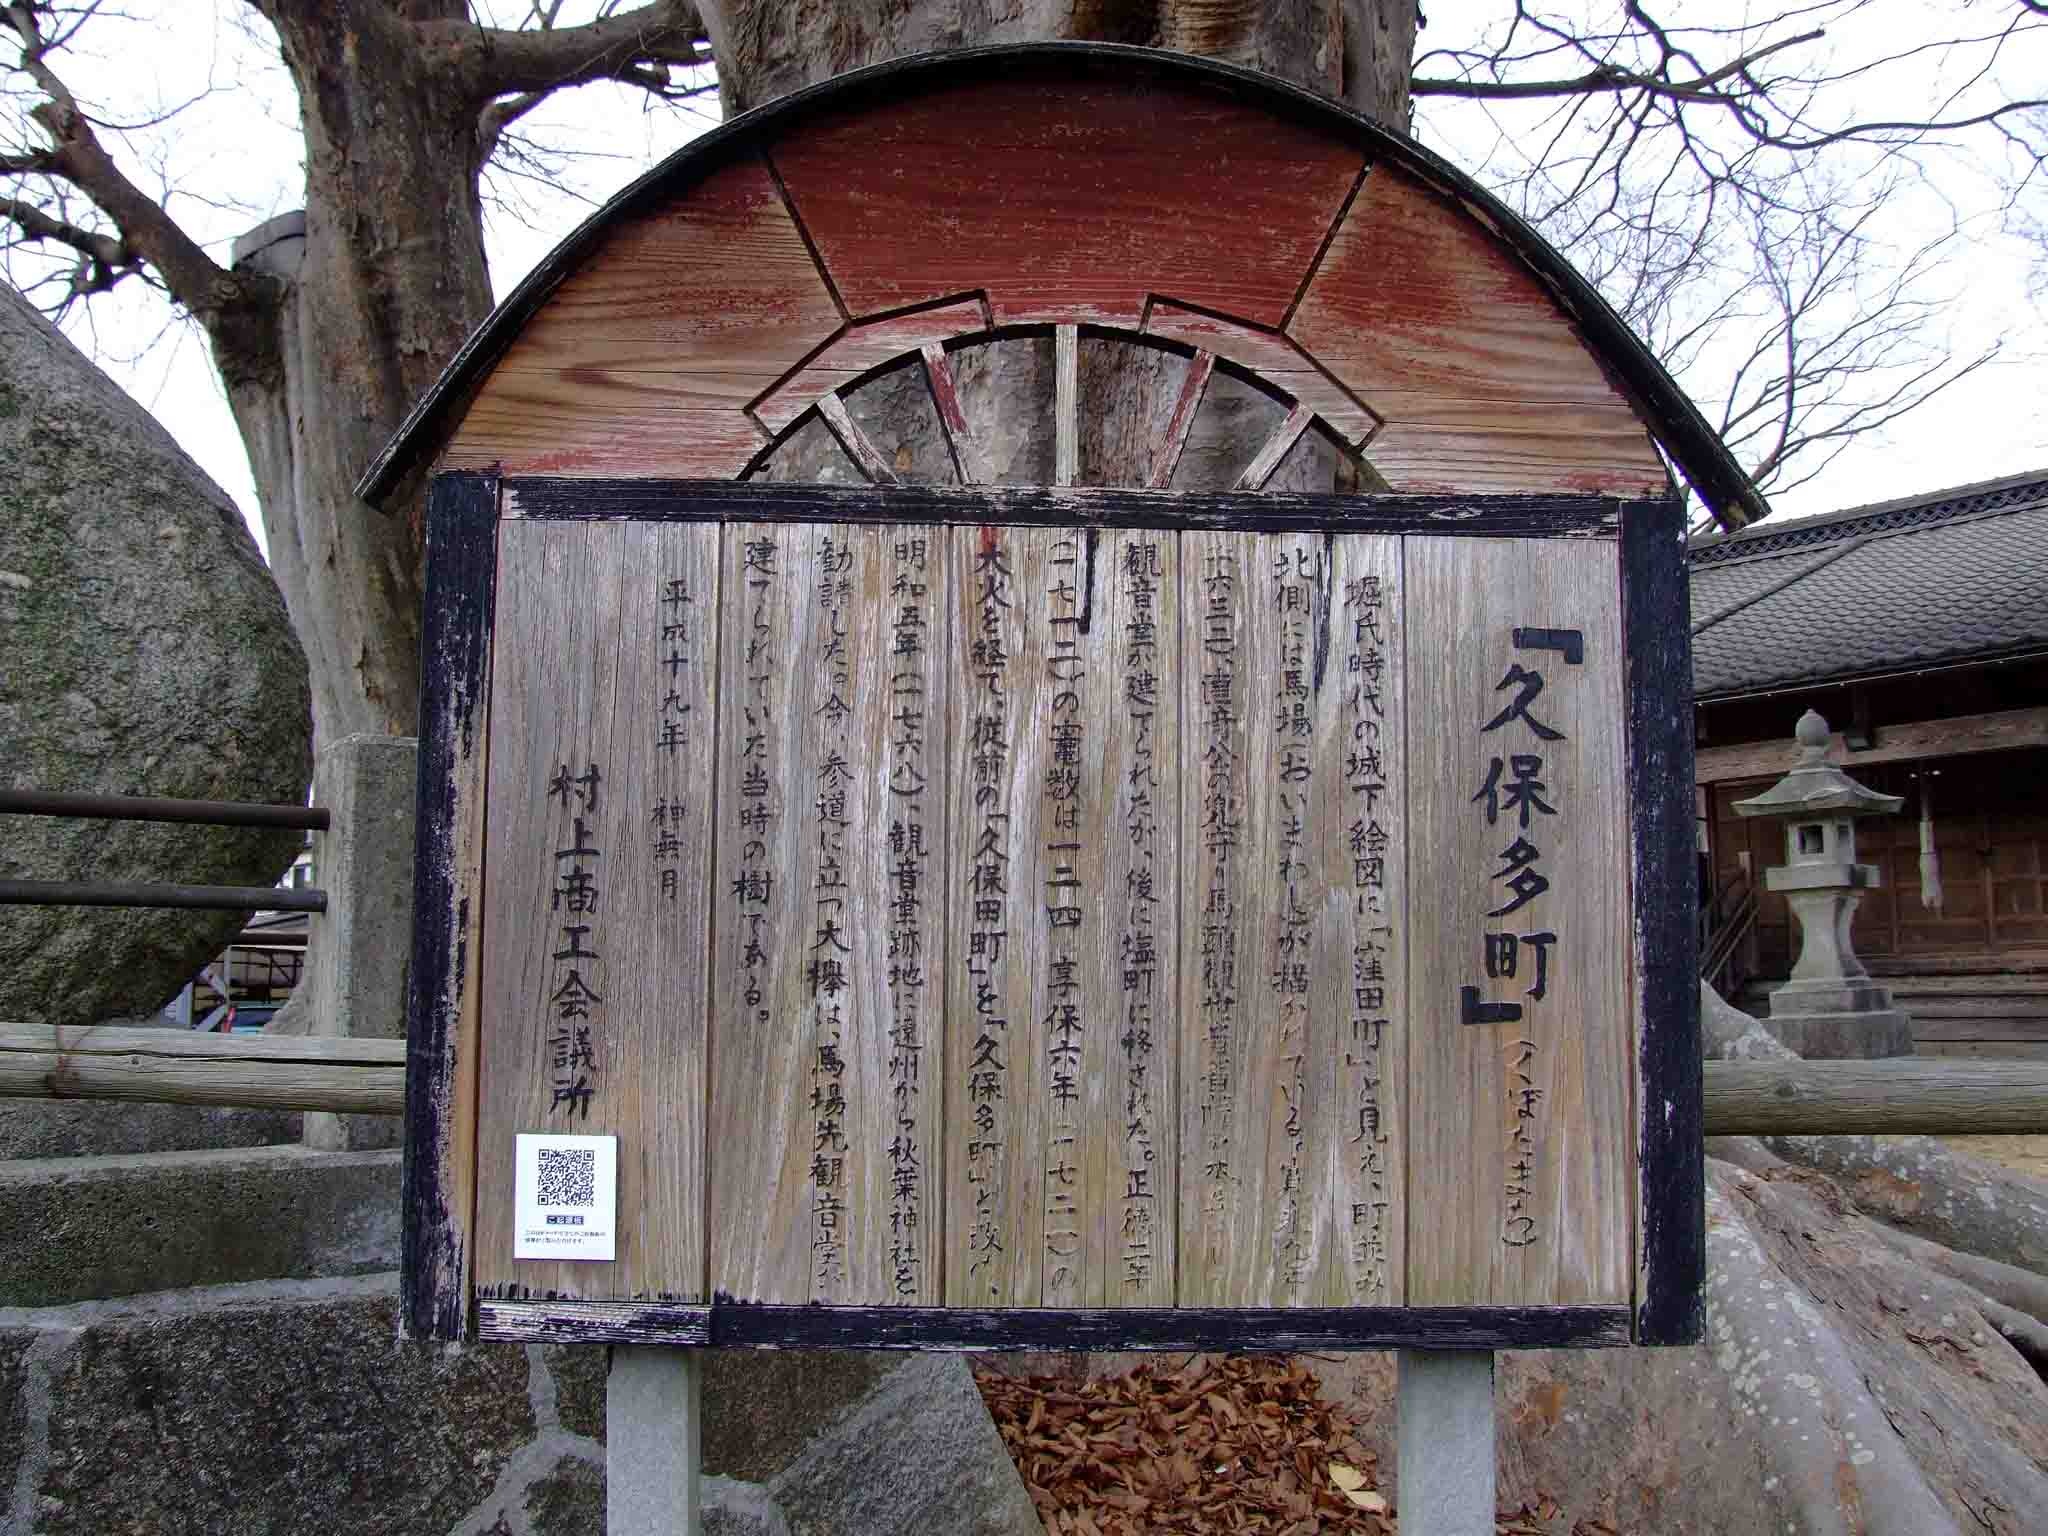 『久保多町』(くぼたまち)
堀氏時代の城下絵図に「窪田町」と見え、町並み
北側には馬場(おいまわし)が描かれている。寛永九年
(一六三二)、直竒公の鬼守り馬頭観世音菩薩
観音堂が建てられたが、後に塩町に移された。正徳二年
(一七一二)の竈数は一二四 享保六年(一七二一)の
大火を経て、従前の「久保田町」を「久保多町」と改め、
明和五年(一七六八)、観音堂跡地に遠州から秋葉神社を
勧請した。今、参道に立つ大欅は、馬場先観音堂が
建てられていた当時の樹である。
平成十九年 神無月
村上商工会議所
ご起源板